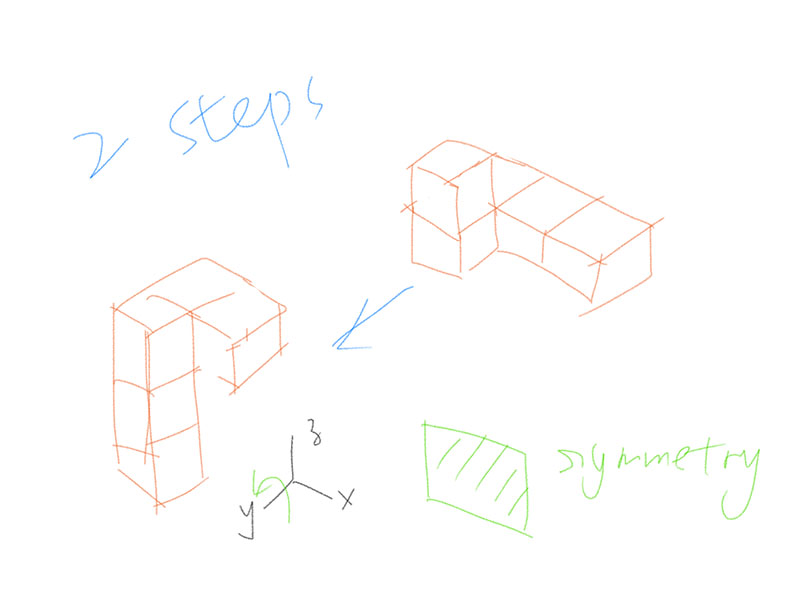 2 steps
z
x
y
symmetry